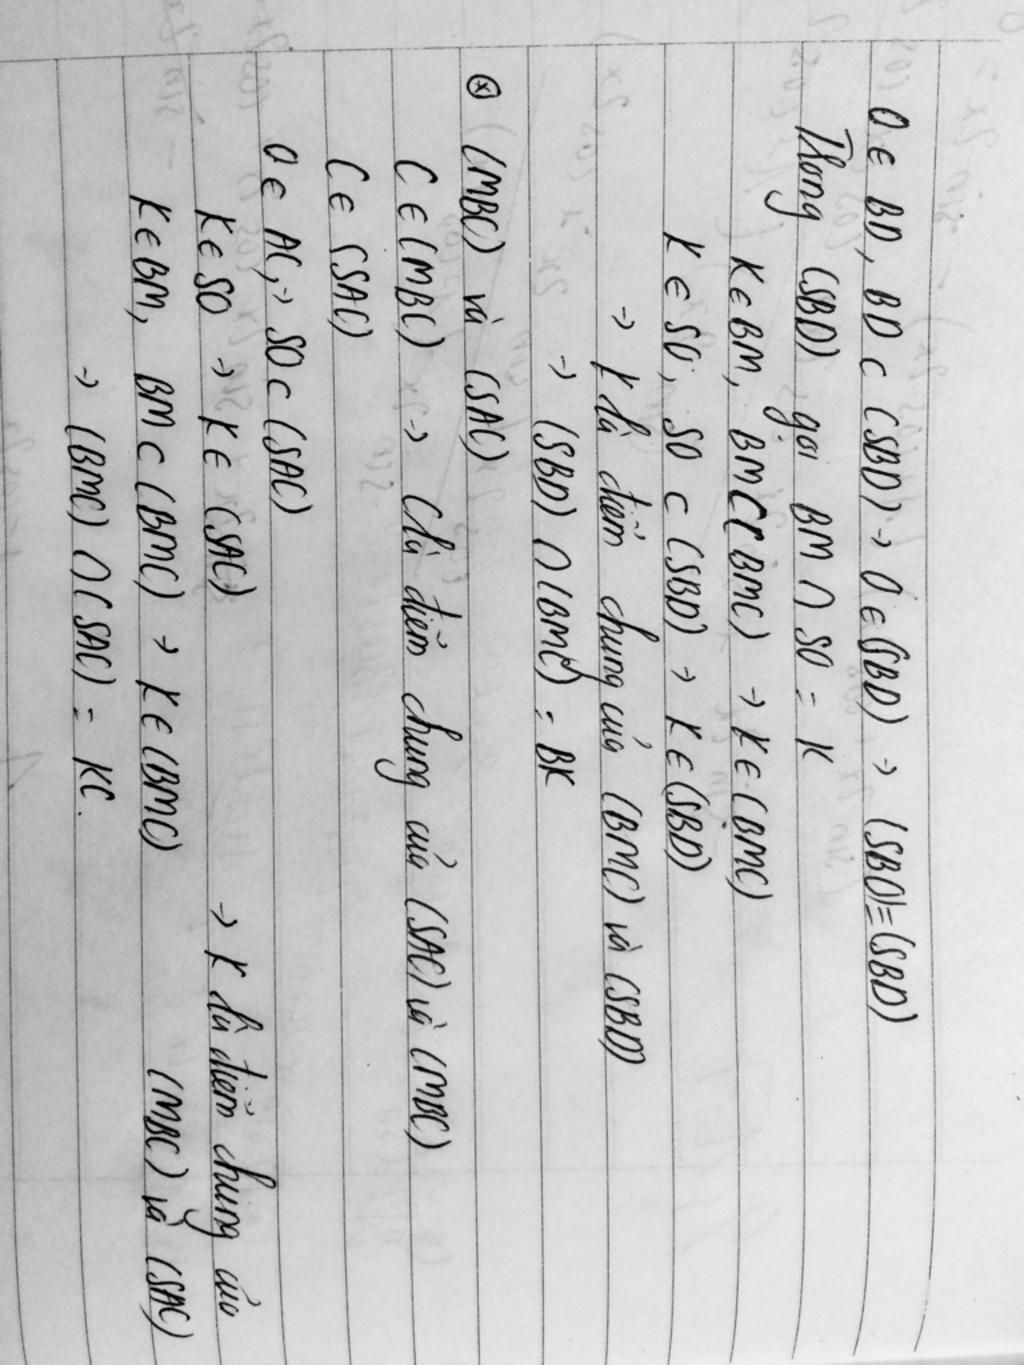 O ∈ BD, BD ⊂ (SBD) → O ∈ (SBD) → (SBO) = (SBD)
Trong (SBD), gọi BM ∩ SO = K
K ∈ BM, BM ⊂ (BMC) → K ∈ (BMC)
K ∈ SO, SO ⊂ (SBD) → K ∈ (SBD)
→ K là điểm chung của (BMC) và (SBD)
→ (SBD) ∩ (BMC) = BK
⊗ (MBC) và (SAC)
C ∈ (MBC) → C là điểm chung của (SAC) và (MBC)
C ∈ (SAC)
O ∈ AC, → SO ⊂ (SAC)
K ∈ SO → K ∈ (SAC) → K là điểm chung của
K ∈ BM, BM ⊂ (BMC) → K ∈ (BMC) (MBC) và (SAC)
→ (BMC) ∩ (SAC) = KC.